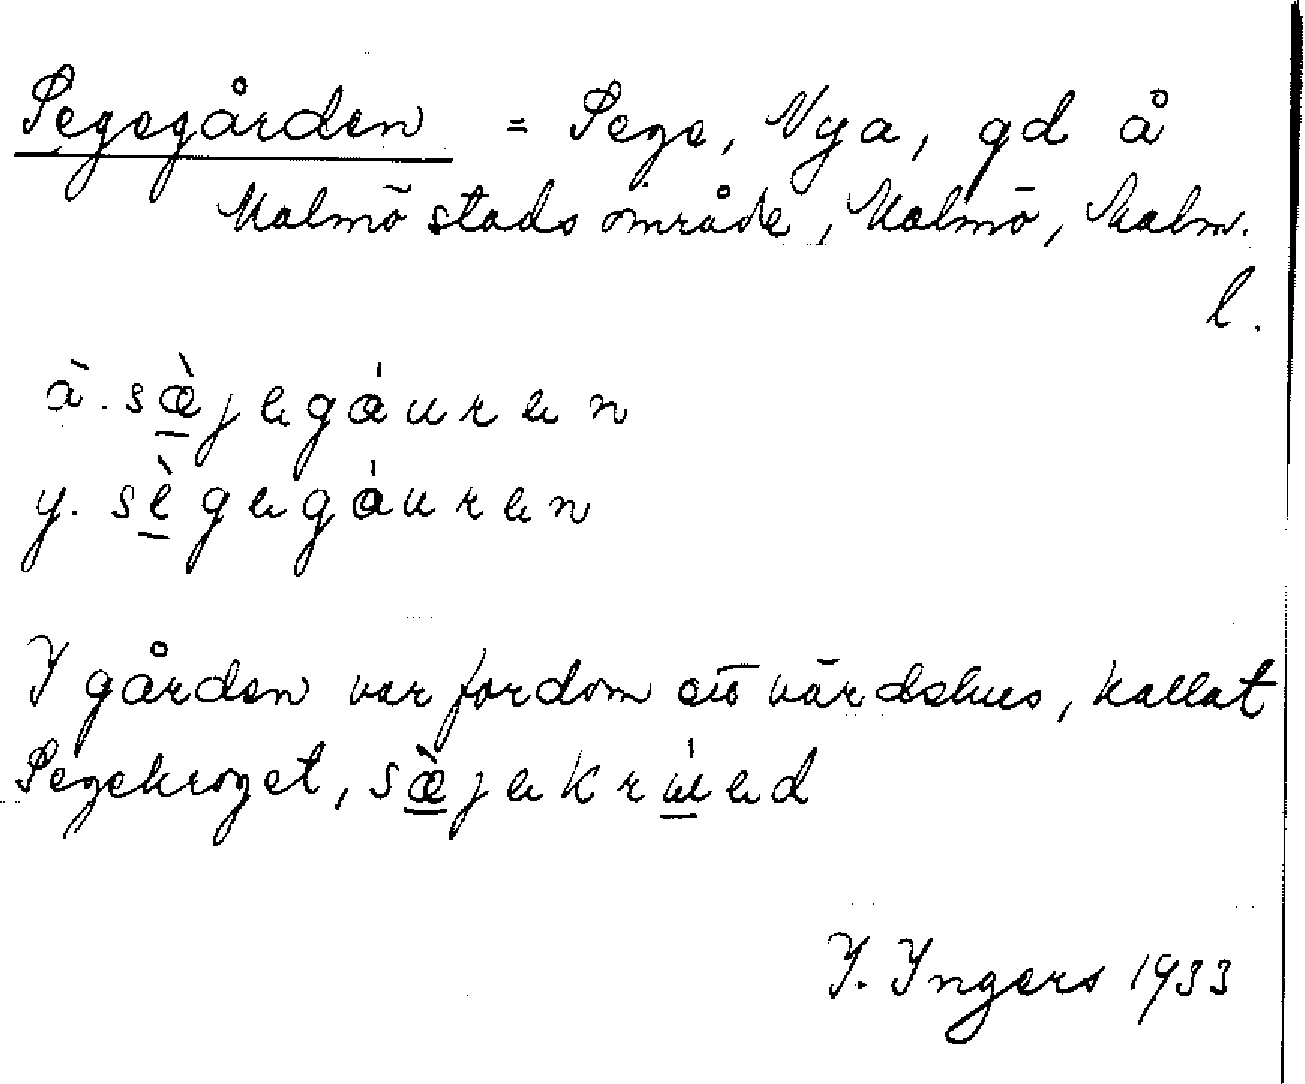 Segegården = Sege, Nya, gd å
Malmö stads område, Malmö, Malm.
l.
ä. sæ̀jegáuren
y. sègegáuren
I gården var fordom ett värdshus, kallat
Segekroget, sæ̀jekrẃed
I. Ingers 1933